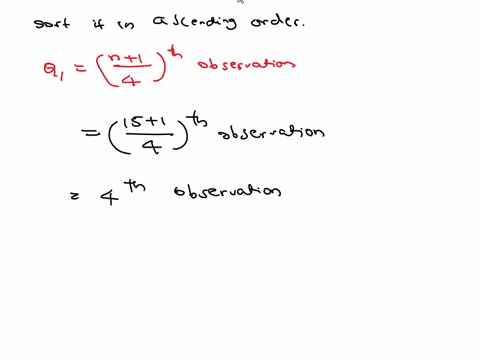 sort it in ascending order.
Q₁ = ((n+1)/4)^th observation
= ((15+1)/4)^th observation
= 4^th observation